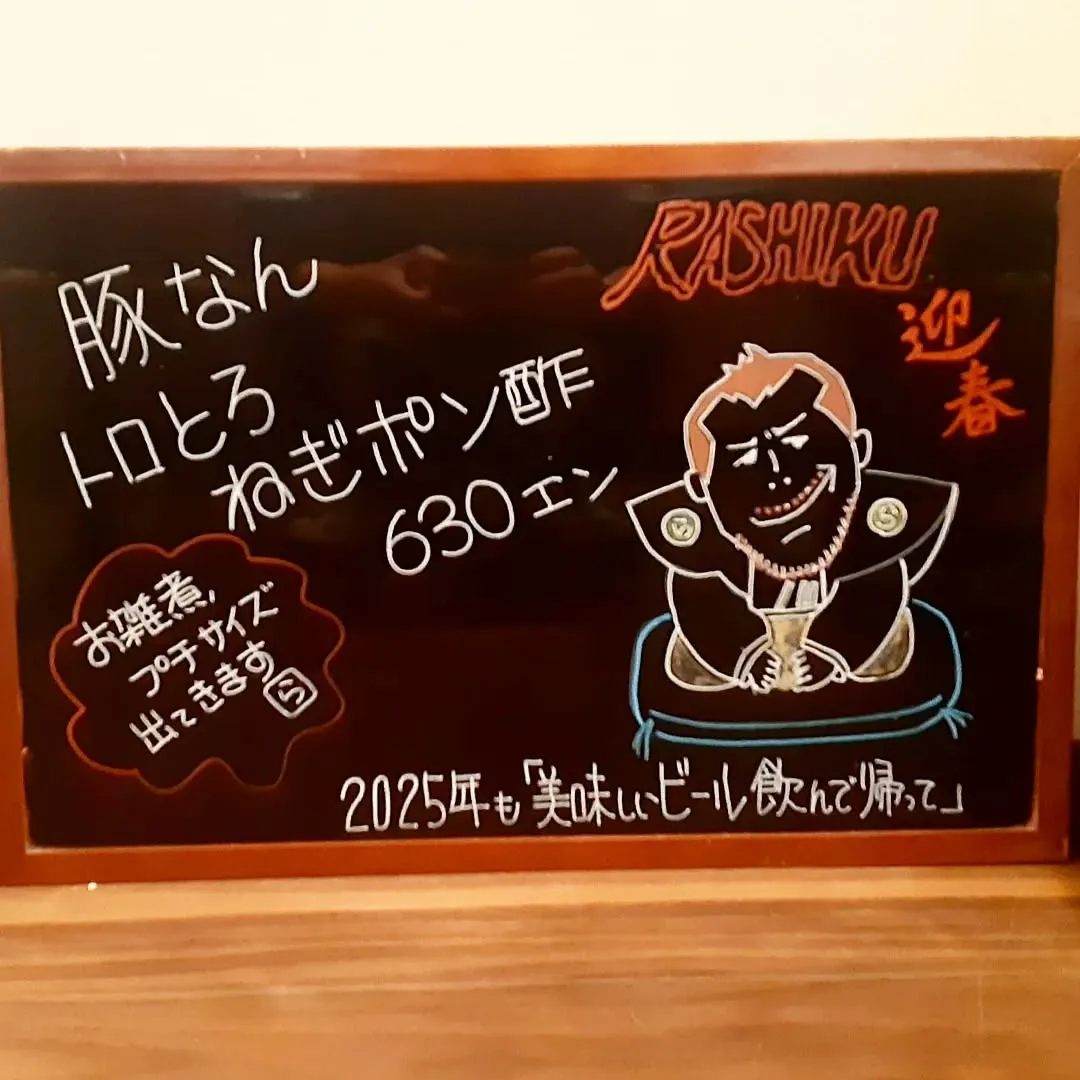 豚なん
トロとろ
ねぎポン酢
630エン
RASHIKU
迎
春
お雑煮、
プチサイズ
出てきます
ら
ら
ら
2025年も「美味しいビール飲んで帰って」